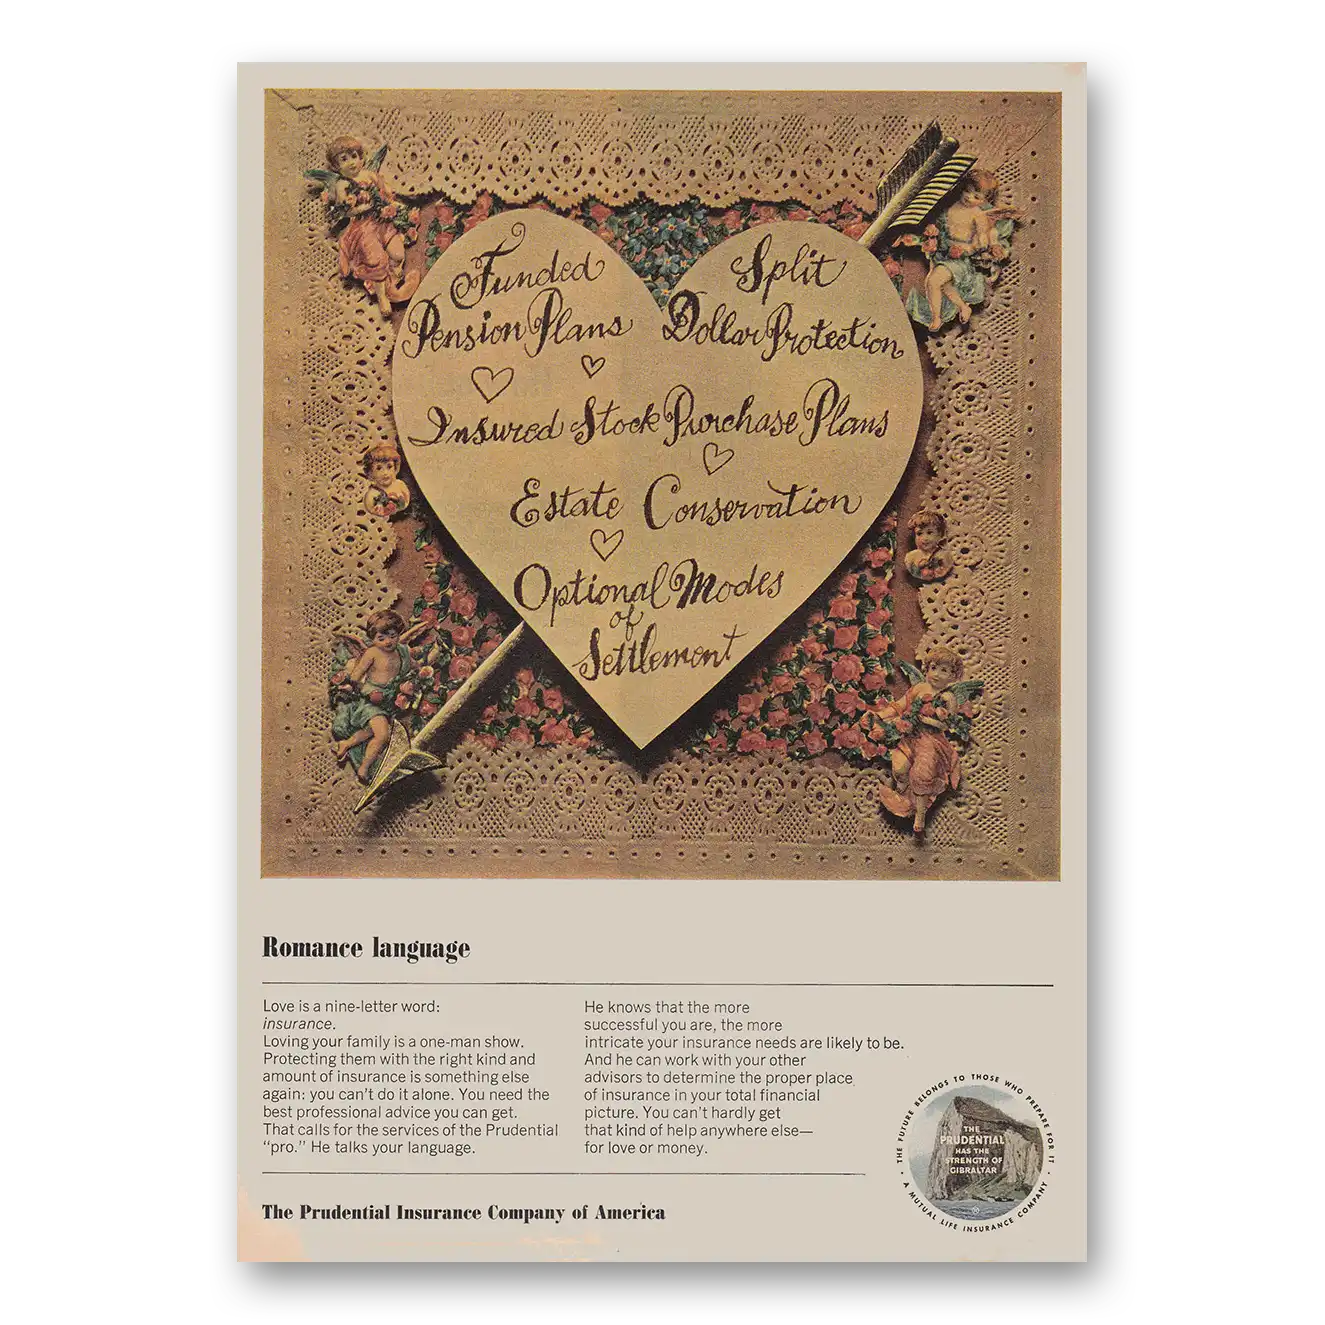 Funded
Pension Plans
Split
Dollar Protection
Insured Stock Purchase Plans
Estate Conservation
Optional Modes
of
Settlement
Romance language
Love is a nine-letter word:
insurance.
Loving your family is a one-man show.
Protecting them with the right kind and
amount of insurance is something else
again: you can't do it alone. You need the
best professional advice you can get.
That calls for the services of the Prudential
“pro.” He talks your language.
He knows that the more
successful you are, the more
intricate your insurance needs are likely to be.
And he can work with your other
advisors to determine the proper place
of insurance in your total financial
picture. You can't hardly get
that kind of help anywhere else—
for love or money.
THE FUTURE BELONGS TO THOSE WHO PREPARE FOR IT
THE
PRUDENTIAL
HAS THE
STRENGTH OF
GIBRALTAR
A MUTUAL LIFE INSURANCE COMPANY
The Prudential Insurance Company of America